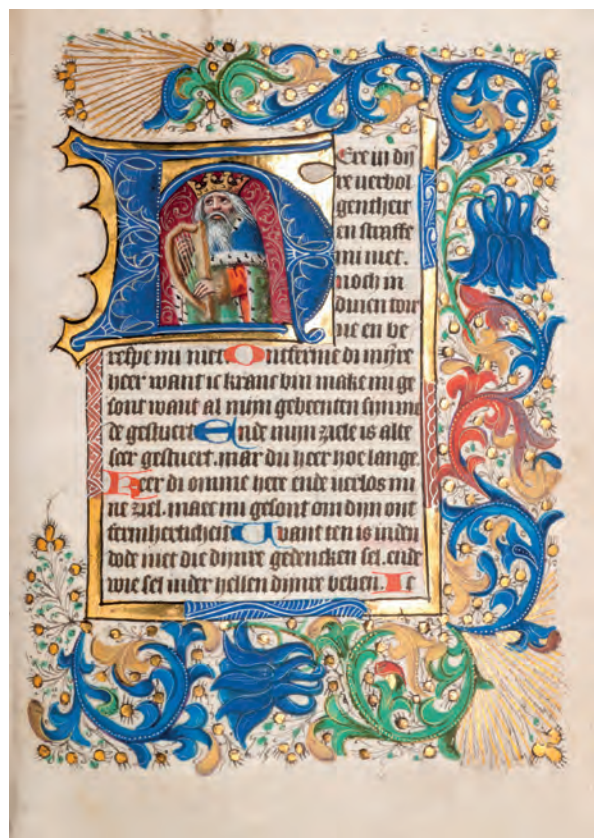 HEre in dijn
re verbol
gentheit
en straffe
mi niet.
noch in
dinen toir
ne en be
respe mi niet. Ontferme di mijre
heer want ic kranc bin make mi ge
sont want al mijn gebeenten sijn
de gestuert Ende mijn ziele is alte
seer gestuert. mar du heer hoe lange.
Keer di omme here ende verlos mi
ne ziel. maec mi gesont om dijn ont
fermherticheit Want ten is inden
dode niet die dijnre gedencken sel. ende
wie sel inder hellen dijnre behen. Ic